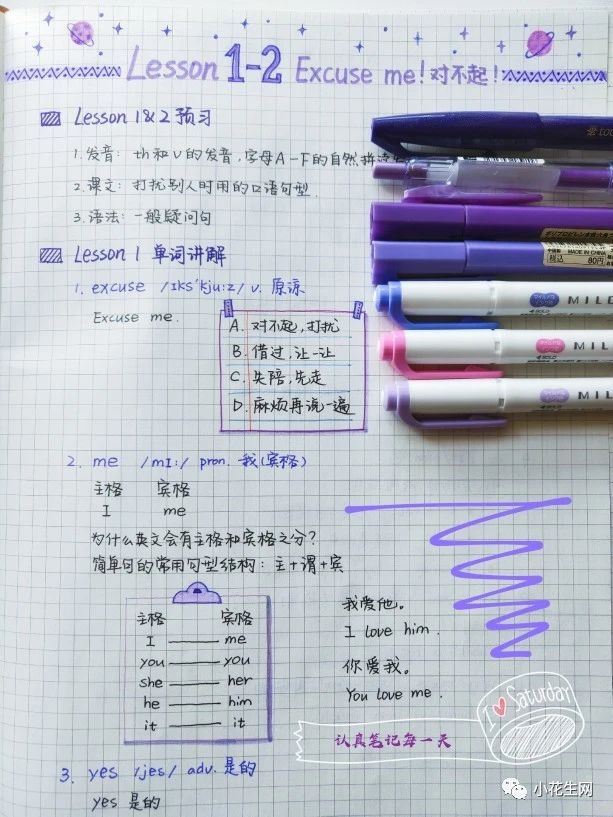 Lesson 1-2 Excuse me! 对不起!
Lesson 1&2 预习
1. 发音: th和v的发音,字母A-F的自然拼读
2. 课文: 打扰别人时用的口语句型.
3. 语法: 一般疑问句
Lesson 1 单词讲解
1. excuse /ɪks'kju:z/ v. 原谅
Excuse me.
A. 对不起,打扰
B. 借过,让一让
C. 失陪,先走
D. 麻烦再说一遍
2. me /mɪ:/ pron. 我(宾格)
主格 宾格
I me
为什么英文会有主格和宾格之分?
简单句的常用句型结构: 主+谓+宾
主格 宾格
I —— me
you —— you
she —— her
he —— him
it —— it
我爱他。
I love him.
你爱我。
You love me.
I ♥ Saturday
认真笔记每一天
3. yes /jes/ adv. 是的
yes 是的
MADE IN CHINA
税込 80円
MILD
MILD
MILD
小花生网